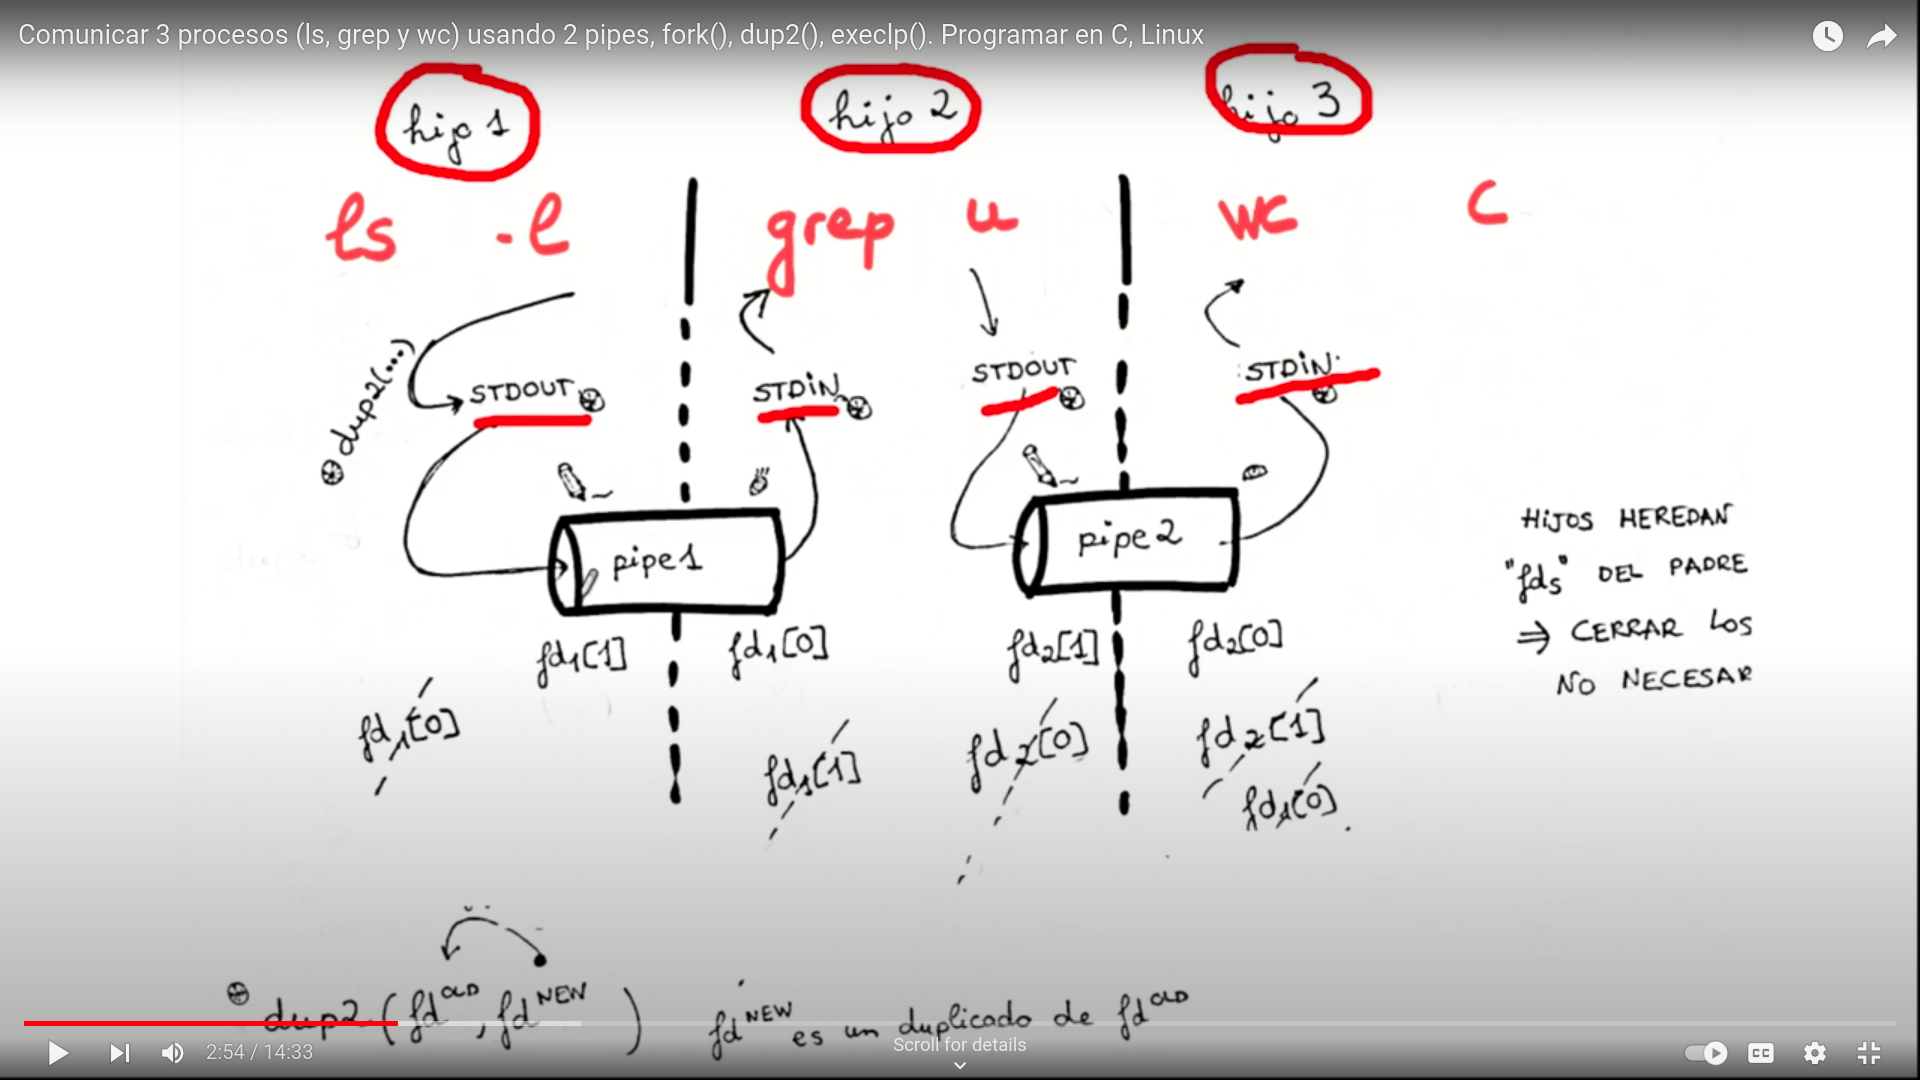 Comunicar 3 procesos (ls, grep y wc) usando 2 pipes, fork(), dup2(), execlp(). Programar en C, Linux
hijo 1 hijo 2 hijo 3
ls -l grep u wc c
dup2(...)
STDOUT STDIN STDOUT STDIN
pipe1 pipe2
fd1[1] fd1[0] fd2[1] fd2[0]
fd1[0] fd1[1] fd2[0] fd2[1]
fd1[0]
HIJOS HEREDAN
"fds" DEL PADRE
⇒ CERRAR LOS
NO NECESAR
dup2 (fd OLD, fd NEW) fd NEW es un duplicado de fd OLD
Scroll for details
2:54 / 14:33
CC